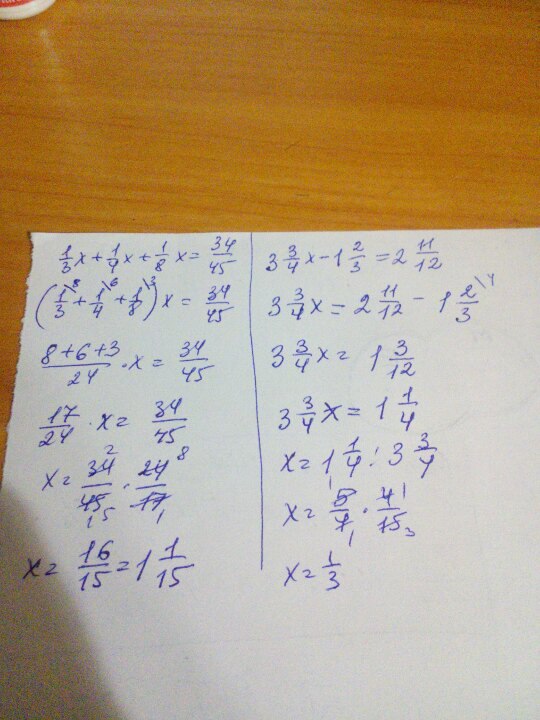 1/3 x + 1/4 x + 1/8 x = 34/45
(1/3 \8 + 1/4 \6 + 1/8 \3) x = 34/45
8+6+3/24 · x = 34/45
17/24 · x = 34/45
x = 34 2/45 15 · 24 8/17 1
x = 16/15 = 1 1/15
3 3/4 x - 1 2/3 = 2 11/12
3 3/4 x = 2 11/12 - 1 2/3 \4
3 3/4 x = 1 3/12
3 3/4 x = 1 1/4
x = 1 1/4 : 3 3/4
x = 5 1/4 1 · 4 1/15 3
x = 1/3